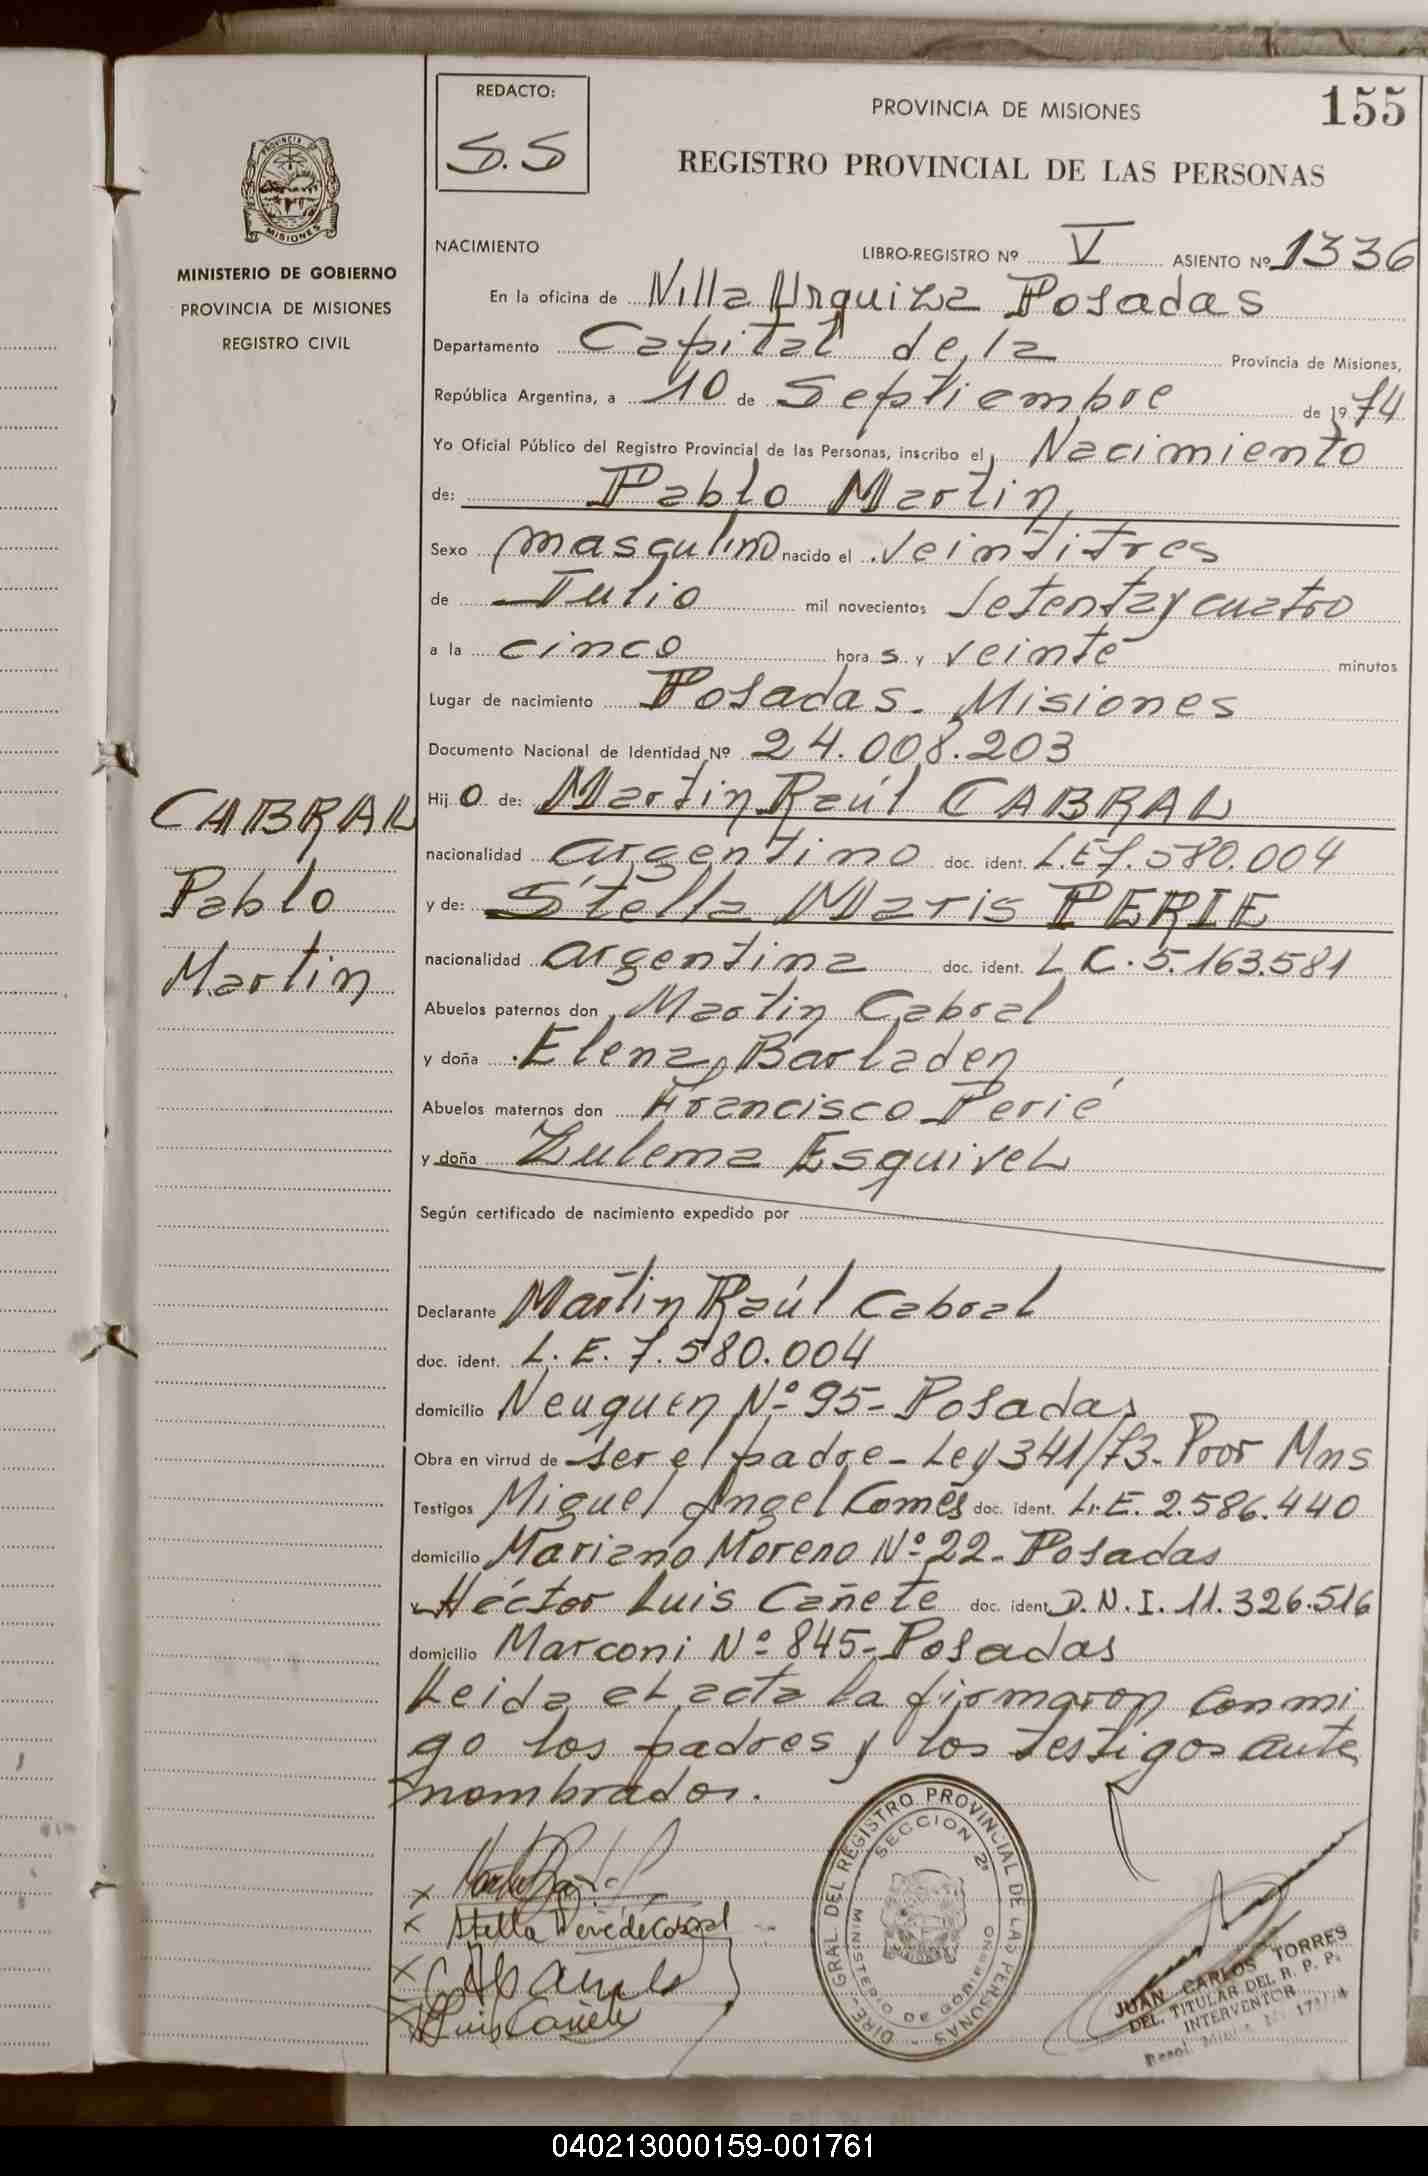 REDACTO:
S.S
PROVINCIA DE MISIONES
155
REGISTRO PROVINCIAL DE LAS PERSONAS
PROVINCIA DE
MISIONES
MINISTERIO DE GOBIERNO
PROVINCIA DE MISIONES
REGISTRO CIVIL
NACIMIENTO LIBRO-REGISTRO Nº V ASIENTO Nº 1336
En la oficina de Villa Urquiza Posadas
Departamento Capital de la Provincia de Misiones,
República Argentina, a 10 de Septiembre de 1974
Yo Oficial Público del Registro Provincial de las Personas, inscribo el Nacimiento
de: Pablo Martin
Sexo masculino nacido el veintitres
de Julio mil novecientos setenta y cuatro
a la cinco hora s y veinte minutos
Lugar de nacimiento Posadas - Misiones
Documento Nacional de Identidad Nº 24.008.203
Hij o de: Martin Raúl CABRAL
nacionalidad argentino doc. ident. L.E 7.580.004
y de: Stella Maris PERIE
nacionalidad argentina doc. ident. L C. 5.163.581
Abuelos paternos don Martin Cabral
y doña Elena Barladen
Abuelos maternos don Francisco Perié
y doña Zulema Esquivel
Según certificado de nacimiento expedido por
CABRAL
Pablo
Martin
Declarante Martin Raúl Cabral
doc. ident. L. E. 7.580.004
domicilio Neuquen Nº 95 - Posadas
Obra en virtud de ser el padre - Ley 341/73 - Pror Mns
Testigos Miguel Angel Comés doc. ident. L.E. 2.586.440
domicilio Mariano Moreno Nº 22 - Posadas
y Héctor Luis Cañete doc. ident. D.N.I. 11.326.516
domicilio Marconi Nº 845 - Posadas
Leida el acta la firmaron conmi
go los padres y los testigos ante
nombrados.
Stella Perie de Cabral
Luis Cañete
DIRE. GRAL. DEL REGISTRO PROVINCIAL DE LAS PERSONAS
SECCION 2ª
MINISTERIO DE GOBIERNO
JUAN CARLOS TORRES
DEL. TITULAR DEL R. P. P.
INTERVENTOR
Resol.
040213000159-001761